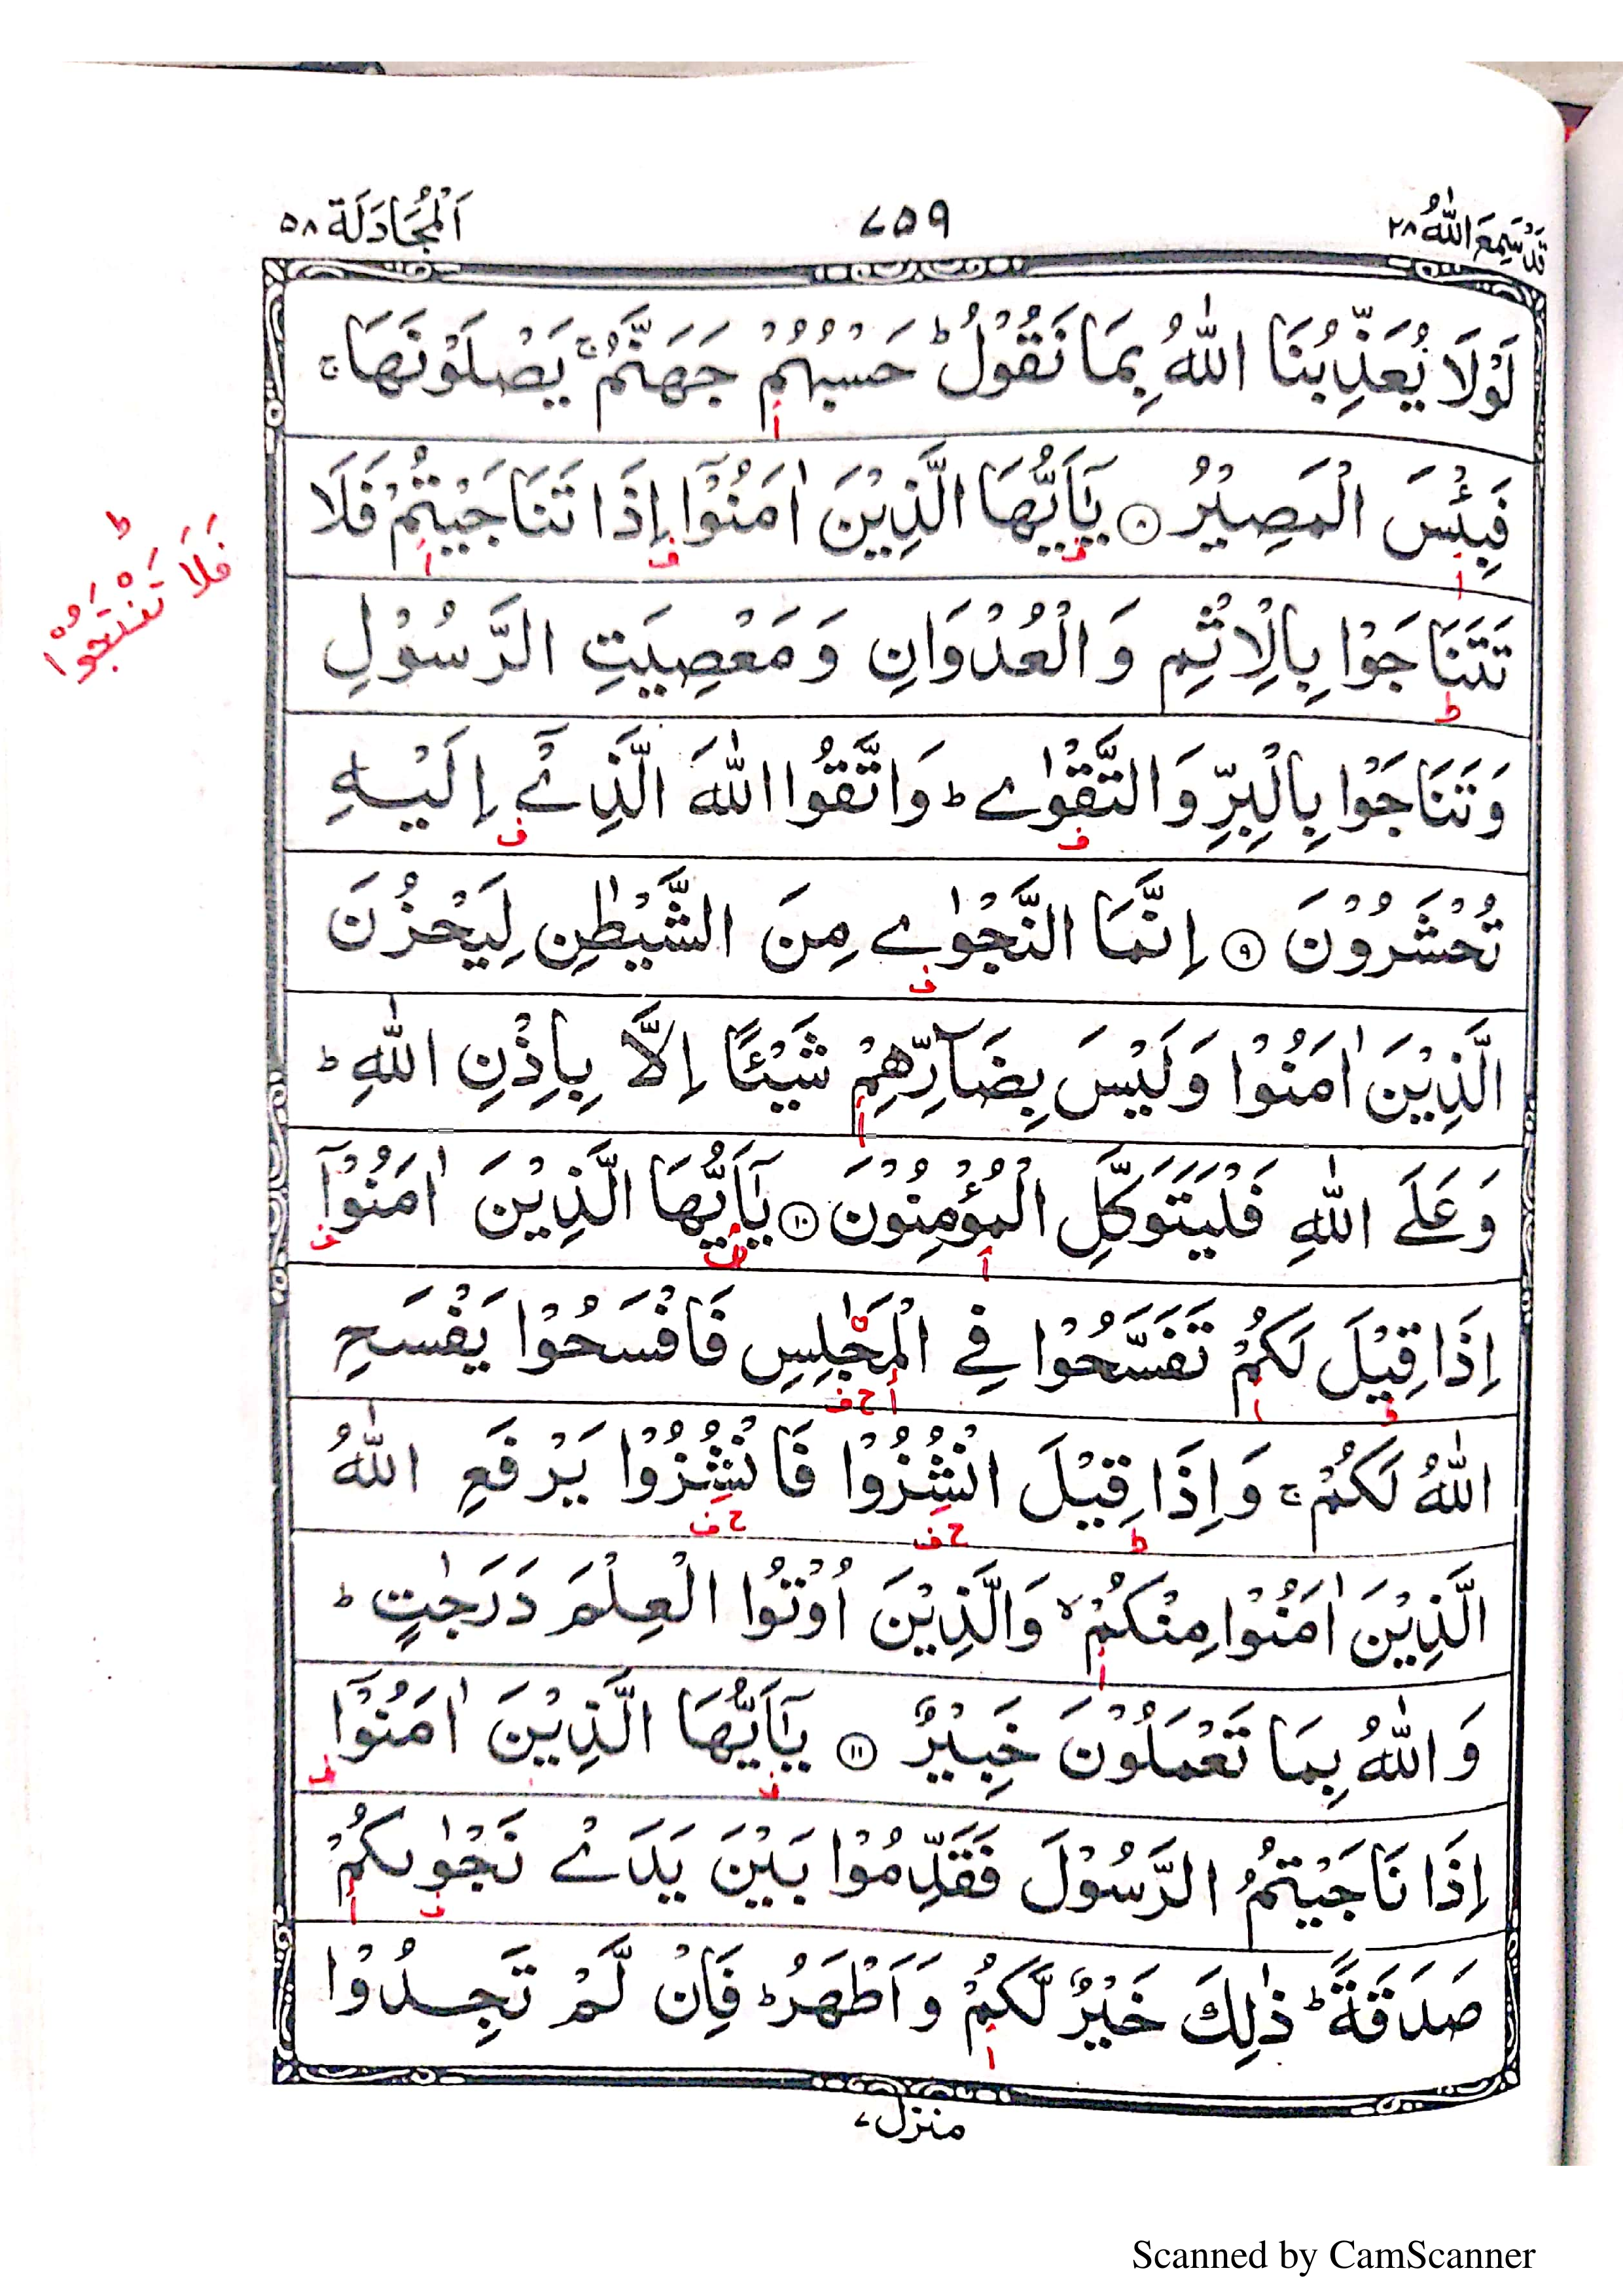 قَدْ سَمِعَ اللّٰهُ ٢٨
٧٥٩
اَلْمُجَادَلَة ٥٨
لَوْلَا يُعَذِّبُنَا اللّٰهُ بِمَا نَقُوْلُ ؕ حَسْبُهُمْ جَهَنَّمُ ۚ يَصْلَوْنَهَا ۚ
ا
فَبِئْسَ الْمَصِيْرُ ۝٨ يٰۤاَيُّهَا الَّذِيْنَ اٰمَنُوْۤا اِذَا تَنَاجَيْتُمْ فَلَا
ا ف ف ا
ط
فَلَا تَنْتَجُوْا
تَتَنَاجَوْا بِالْاِثْمِ وَالْعُدْوَانِ وَمَعْصِيَتِ الرَّسُوْلِ
ط
وَتَنَاجَوْا بِالْبِرِّ وَالتَّقْوٰے ؕ وَاتَّقُوا اللّٰهَ الَّذِيْۤ اِلَيْهِ
ف ف
تُحْشَرُوْنَ ۝٩ اِنَّمَا النَّجْوٰے مِنَ الشَّيْطٰنِ لِيَحْزُنَ
ف
الَّذِيْنَ اٰمَنُوْا وَلَيْسَ بِضَآرِّهِمْ شَيْـًٔا اِلَّا بِاِذْنِ اللّٰهِ ؕ
ا
وَعَلَے اللّٰهِ فَلْيَتَوَكَّلِ الْمُؤْمِنُوْنَ ۝١٠ يٰۤاَيُّهَا الَّذِيْنَ اٰمَنُوْۤا
ا ف ف
اِذَا قِيْلَ لَكُمْ تَفَسَّحُوْا فِے الْمَجٰلِسِ فَافْسَحُوْا يَفْسَحِ
ط ا ا ح ف
اللّٰهُ لَكُمْ ۚ وَاِذَا قِيْلَ انْشُزُوْا فَانْشُزُوْا يَرْفَعِ اللّٰهُ
ط ح ف ح ف
الَّذِيْنَ اٰمَنُوْا مِنْكُمْ ۙ وَالَّذِيْنَ اُوْتُوا الْعِلْمَ دَرَجٰتٍ ؕ
ا
وَاللّٰهُ بِمَا تَعْمَلُوْنَ خَبِيْرٌ ۝١١ يٰۤاَيُّهَا الَّذِيْنَ اٰمَنُوْۤا
ف ف
اِذَا نَاجَيْتُمُ الرَّسُوْلَ فَقَدِّمُوْا بَيْنَ يَدَےْ نَجْوٰىكُمْ
ف ا
صَدَقَةً ؕ ذٰلِكَ خَيْرٌ لَّكُمْ وَاَطْهَرُ ؕ فَاِنْ لَّمْ تَجِدُوْا
ا
منزل ٧
Scanned by CamScanner